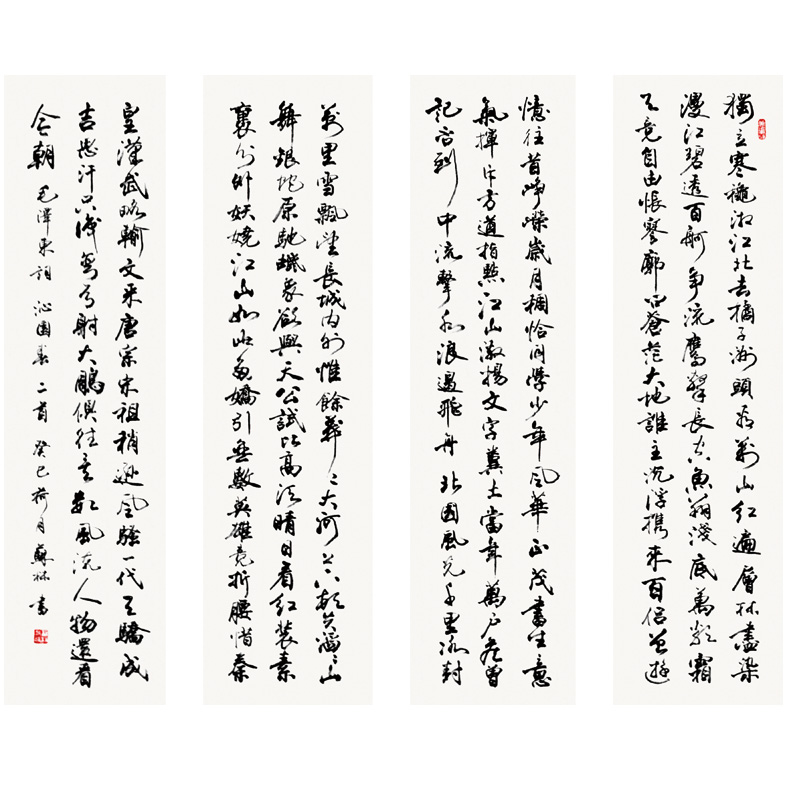 獨立寒穐湘江北去橘子洲頭看万山紅遍層林盡染
漫江碧透百舸争流鹰擊長空魚翔淺底萬類霜
天竟自由悵寥廓问蒼茫大地誰主沉浮携來百侣曾遊
憶往昔峥嶸歲月稠恰同學少年風華正茂書生意
氣揮斥方遒指點江山激揚文字糞土當年萬户侯曾
記否到中流擊水浪遏飛舟北國風光千里冰封
萬里雪飄望長城内外惟餘莽〻大河上下頓失滔〻山
舞銀蛇原馳蠟象欲與天公試比高須晴日看紅裝素
裹分外妖嬈江山如此多嬌引無數英雄竞折腰惜秦
皇漢武略輸文采唐宗宋祖稍遜風騷一代天驕成
吉思汗只識彎弓射大鵰俱往矣數風流人物還看
今朝 毛澤東詞 沁園春二首 癸巳荷月蘇林書